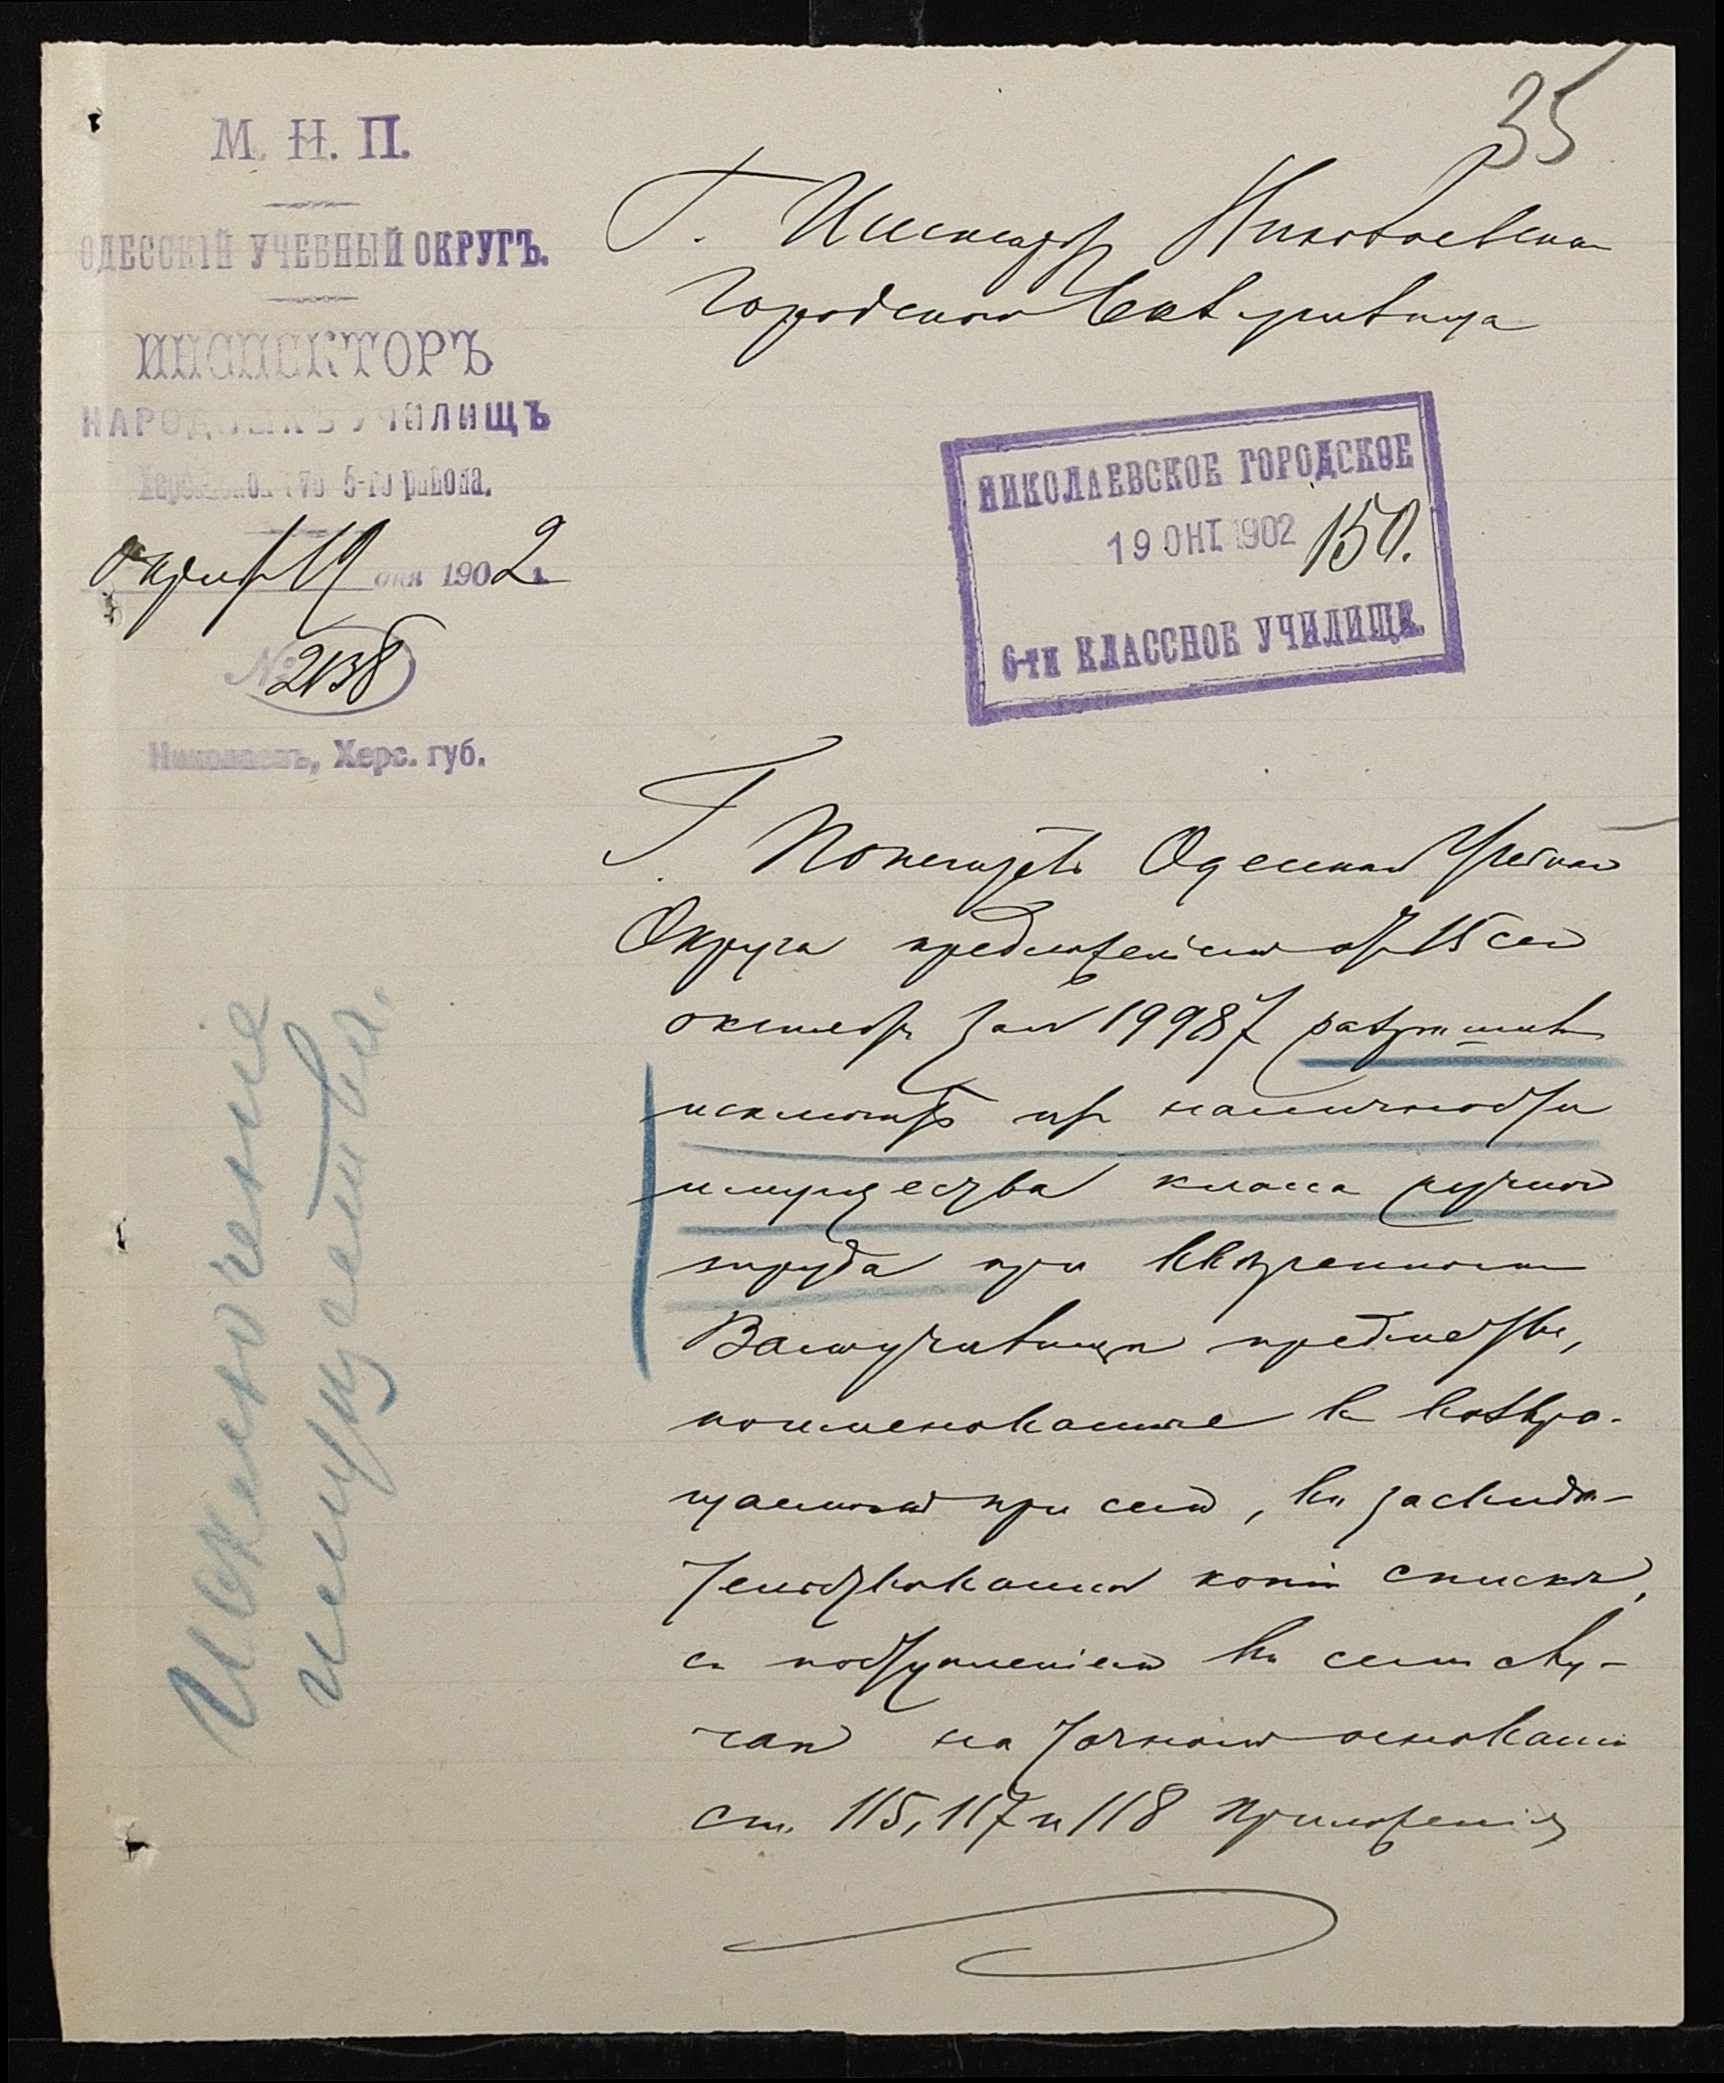 35
М. Н. П.
ОДЕССКІЙ УЧЕБНЫЙ ОКРУГЪ.
ИНСПЕКТОРЪ
НАРОДНЫХЪ УЧИЛИЩЪ
Херсонской губ 5-го района.
Октября 19 дня 1902 г.
№ 2138
Николаевъ, Херс. губ.
Г. Инспектору Николаевскаго
Городского 6кл училища
НИКОЛАЕВСКОЕ ГОРОДСКОЕ
19 ОКТ. 1902 150.
6-ти КЛАССНОЕ УЧИЛИЩЕ.
Г. Попечитель Одесскаго Учебнаго
Округа предложеніемъ отъ 15 сего
октября за № 19987 разрѣшилъ
исключить изъ наличности
имущества класса ручного
труда при ввѣренномъ
Вамъ училищѣ предметы,
поименованные въ возвра-
щаемой при семъ, въ засвидѣ-
тельствованной копіи списка,
съ поступленіемъ въ семъ слу-
чаѣ на точномъ основаніи
ст. 115, 117 и 118 Приложенія
Исключеніе
имущества.